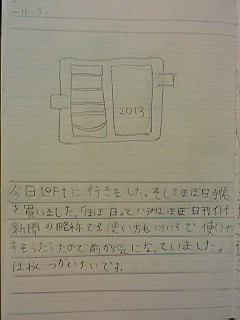 －11.3.
2013
今日LOFtに行きました。そしてほぼ日手帳
を買いました。「ほぼ日」っていうのはほぼ日刊イトイ
新聞の略称です使い方もいろいろで使いや
すそうだったので前から気になっていました。
はやくつかいたいです。